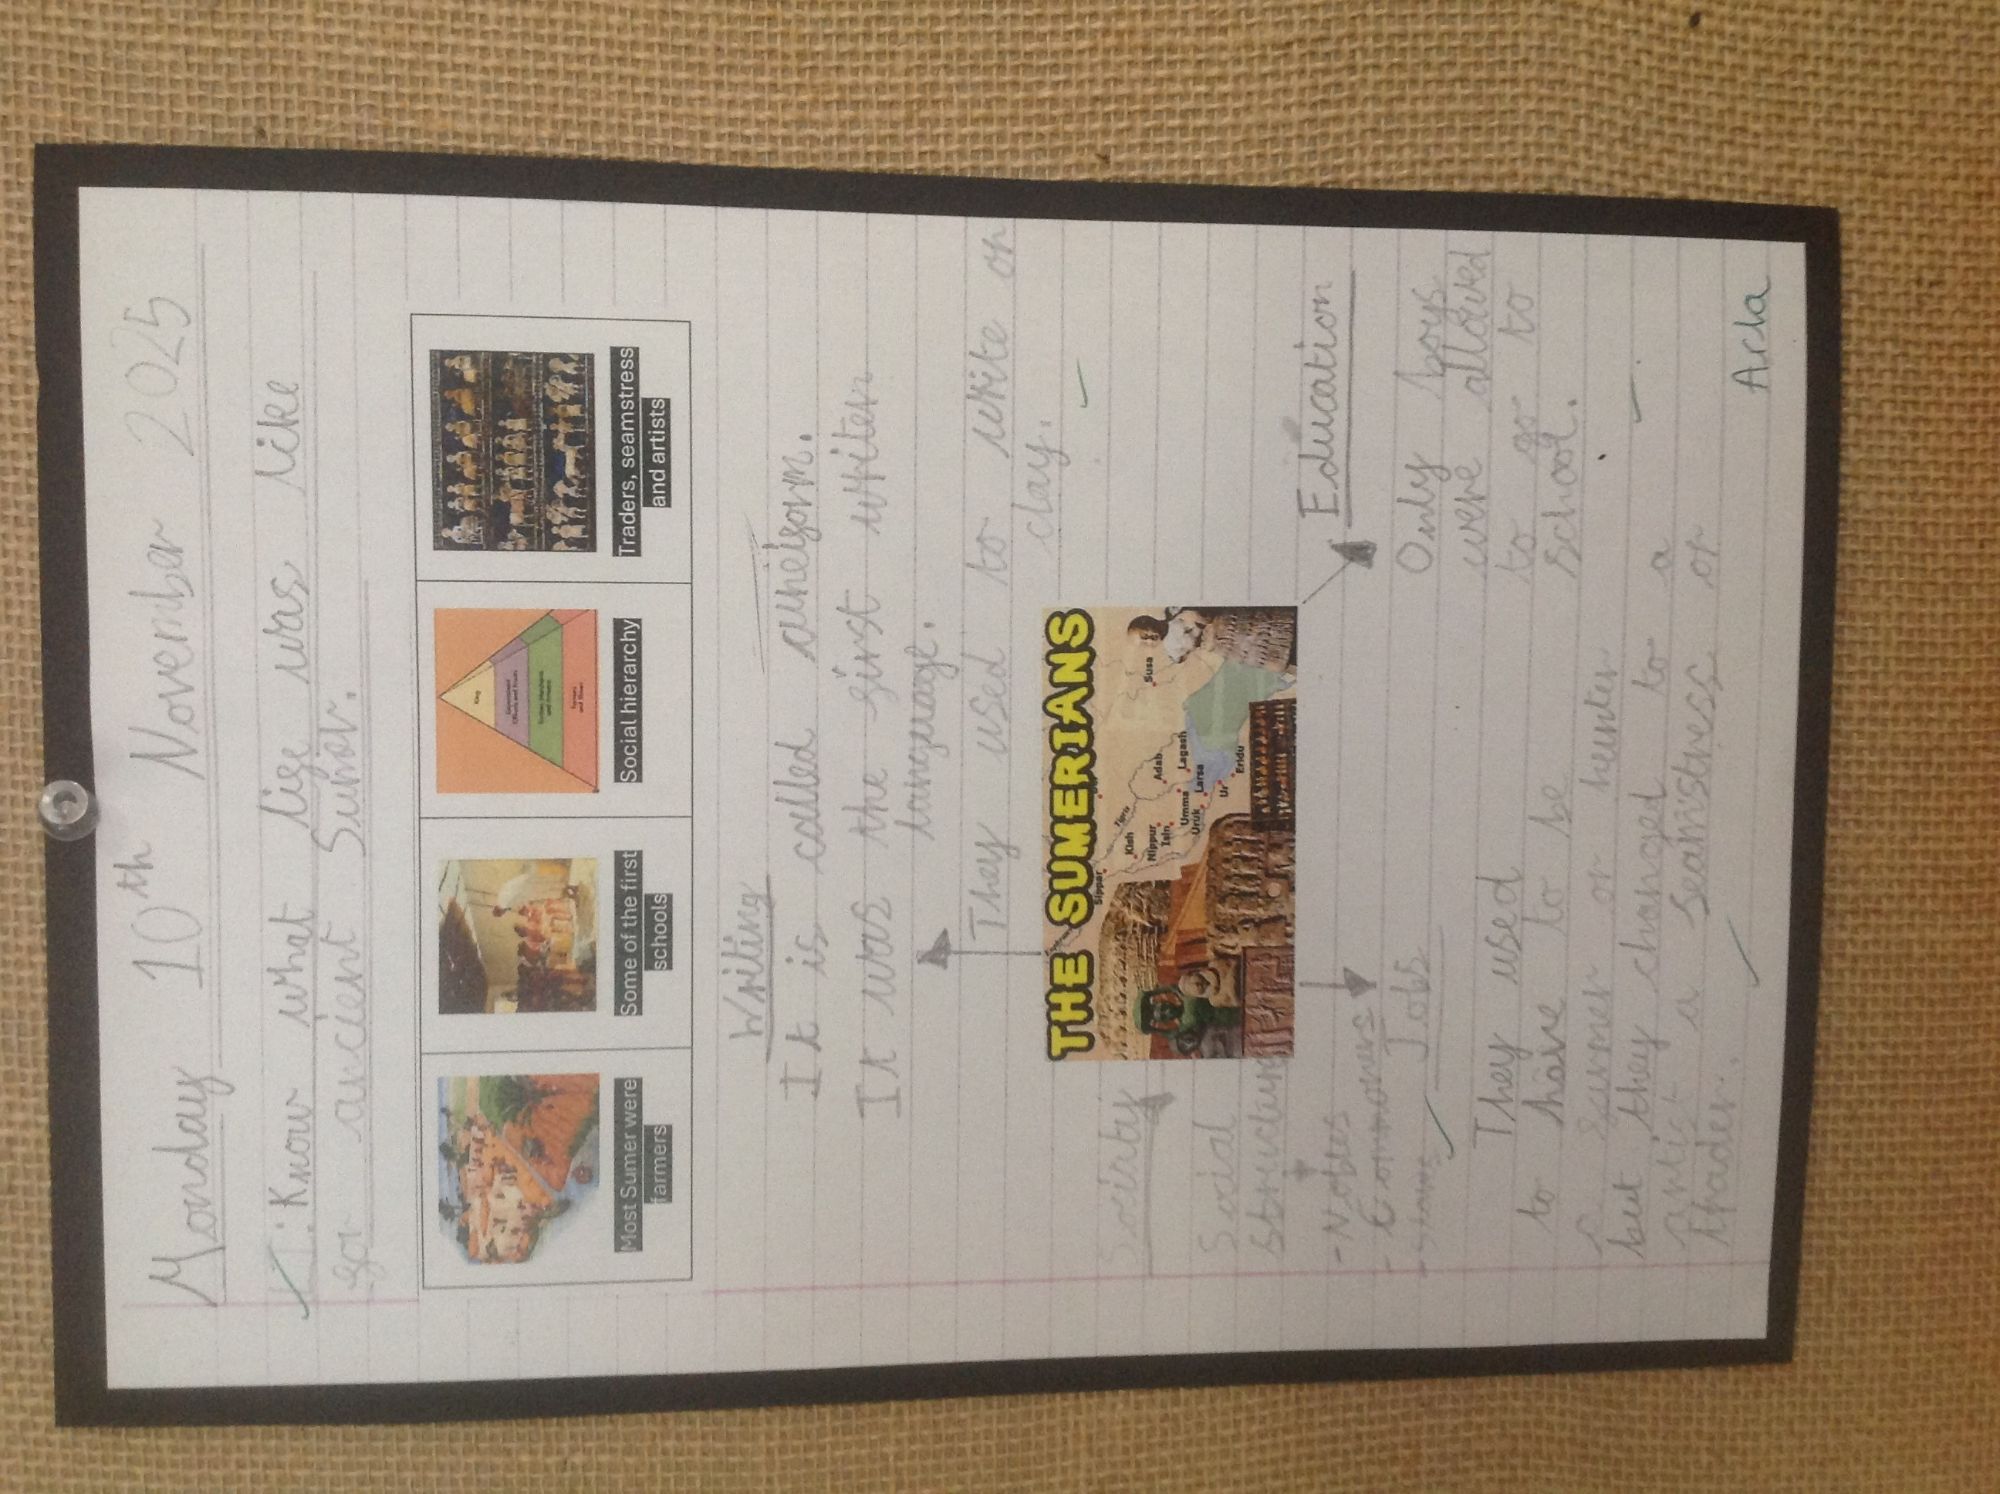 Monday 10th November 2025
I: Know what lige was like
gor ancient Sumer.
Most Sumer were
farmers
Some of the first
schools
Social hierarchy
King
Traders, seamstress
and artists
Writing
It is called cuneigorm.
It was the girst writen
language.
They used to write on
clay.
THE SUMERIANS
Sippar
Kish
Nippur
Isin
Adab
Umma
Uruk
Lagash
Larsa
Ur
Eridu
Susa
Social
structure
- Nobles
- Commoners
Jobs
They used
to have to be
a garmer or hunter
but they changed to a
artist a seamstress or
trader.
Education
Only boys
were allowed
to go to
school.
Arla